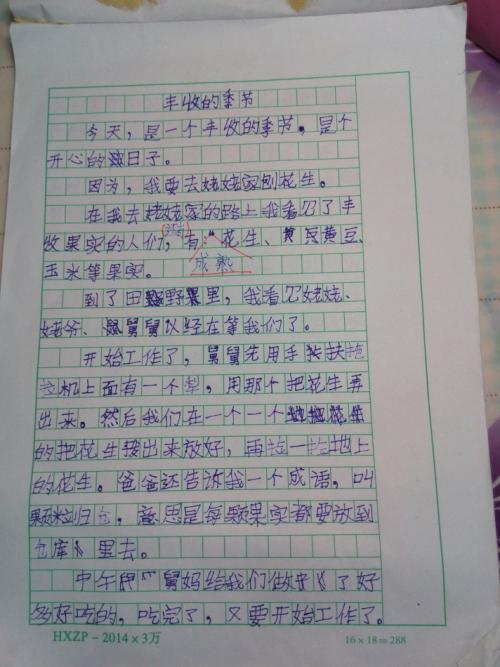 丰收的季节
今天，是一个丰收的季节，是个
开心的日子。
因为，我要去姥姥家刨花生。
在我去姥姥家的路上我看见了丰
收果实的人们，有花生、黄豆、
成熟
玉米等果实。
到了田野里，我看见姥姥、
姥爷、舅舅以经在等我们了。
开始工作了，舅舅先用手扶拖
拉机上面有一个犁，用那个把花生弄
出来。然后我们在一个一个
的把花生拔出来放好，再捡一捡地上
的花生。爸爸还告诉我一个成语，叫
颗粒归仓，意思是每颗果实都要放到
仓库里去。
中午舅妈给我们做了好
多好吃的，吃完了，又要开始工作了。
HXZP-2014×3万
16×18=288